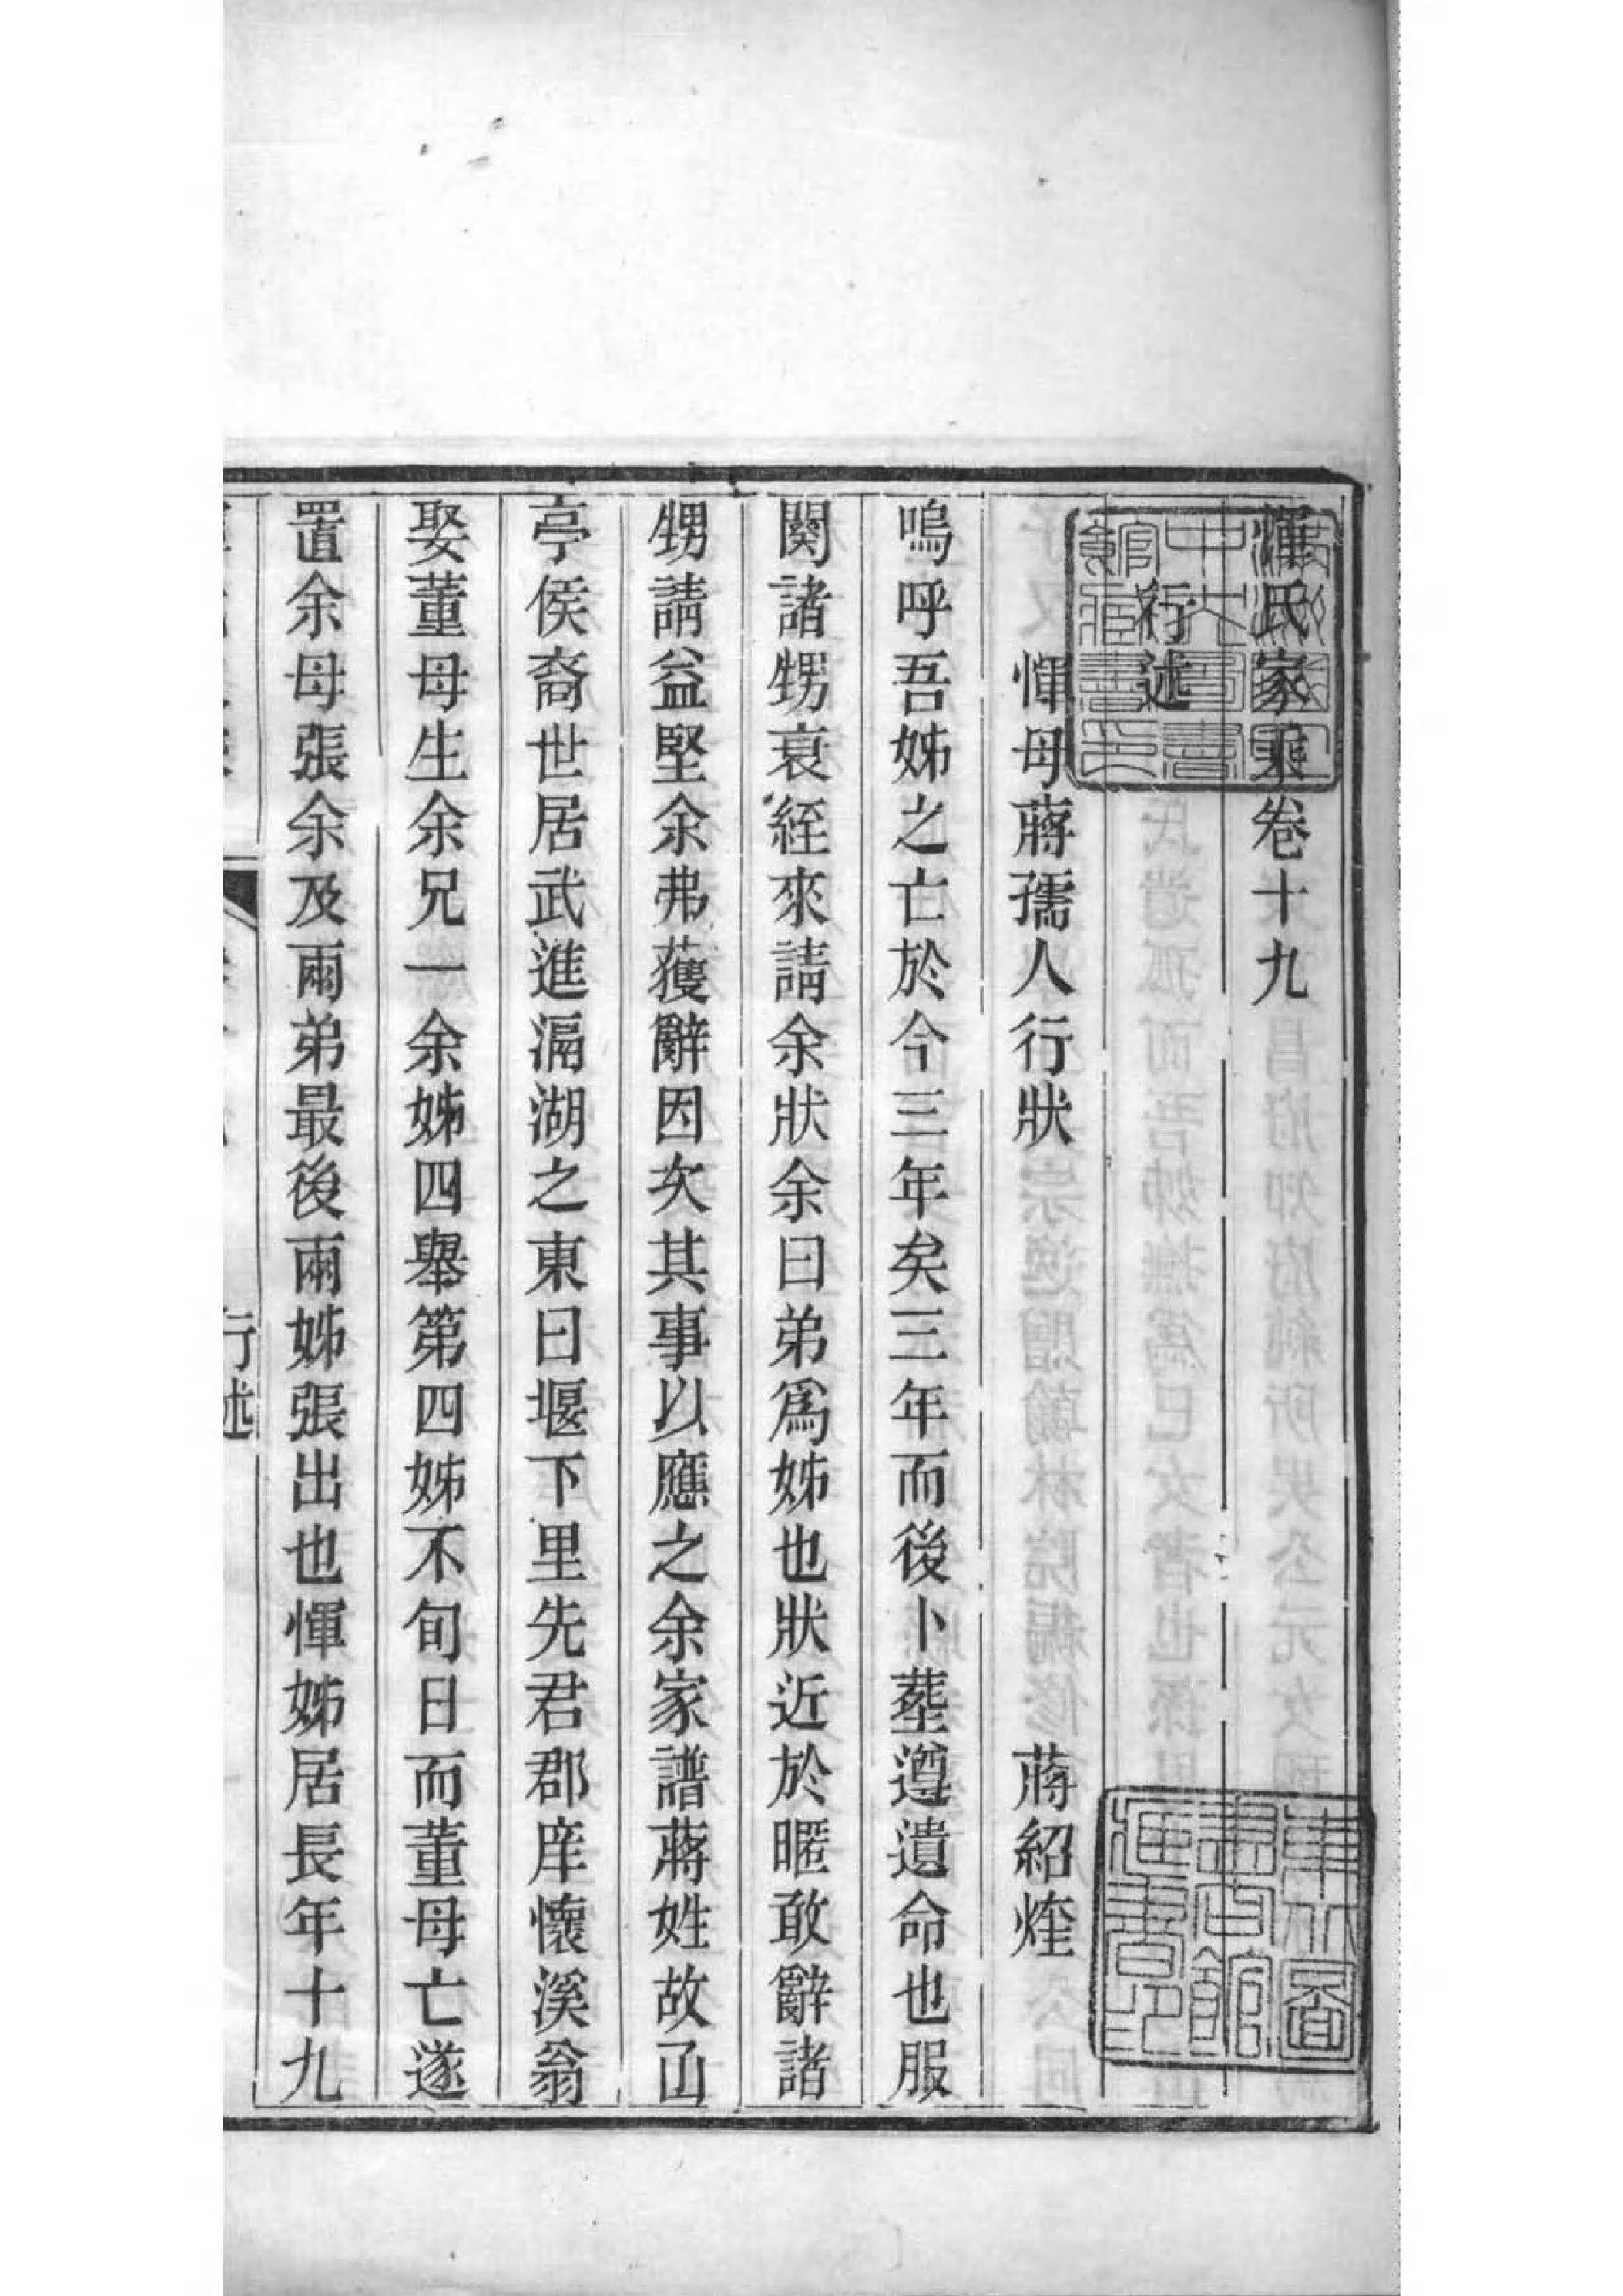 惲氏家乘卷十九
行述
惲母蔣孺人行狀 蔣紹煃
嗚呼吾姊之亡於今三年矣三年而後卜塟遵遺命也服
闋諸甥衰絰來請余狀余曰弟爲姊也狀近於暱敢辭諸
甥請益堅余弗獲辭因次其事以應之余家譜蔣姓故㓊
亭侯裔世居武進滆湖之東曰堰下里先君郡庠懷溪翁
娶董母生余兄一余姊四舉第四姊不旬日而董母亡遂
置余母張余及兩弟最後兩姊張出也惲姊居長年十九
行述